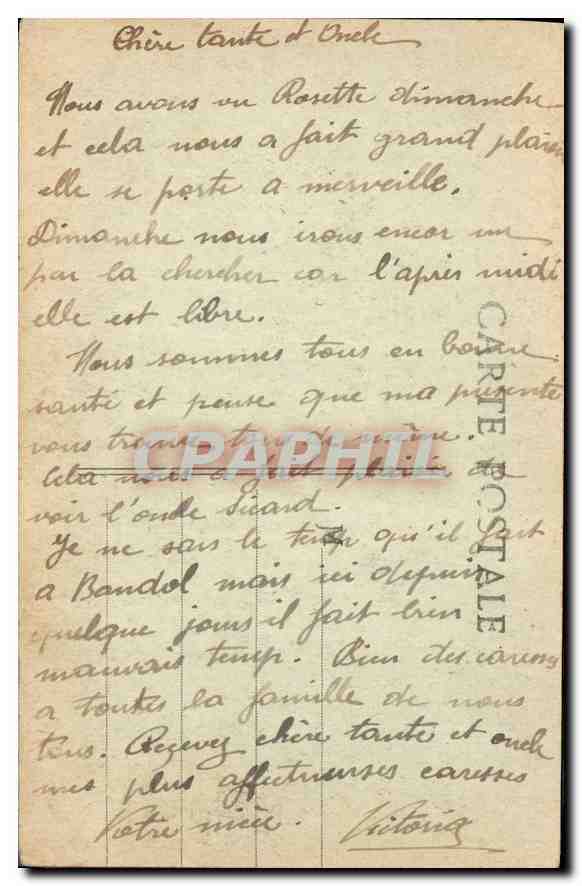 Chère tante et Oncle
Nous avons vu Rosette dimanche
et cela nous a fait grand plaisir
elle se porte a merveille.
Dimanche nous irons encor un
par la chercher car l'après midi
elle est libre.
Nous sommes tous en bonne
santé et pense que ma présente
vous trouve tous de même.
Cela nous a fait plaisir de
voir l'oncle Sicard.
Je ne sais le temp qu'il fait
a Bandol mais ici depuis
quelque jours il fait bien
mauvais temp. Bien des caresses
a toutes la famille de nous
tous. Reçevez chère tante et oncle
mes plus affectueuses caresses
Votre nièce. Victoria
CARTE POSTALE
CPAPHIL